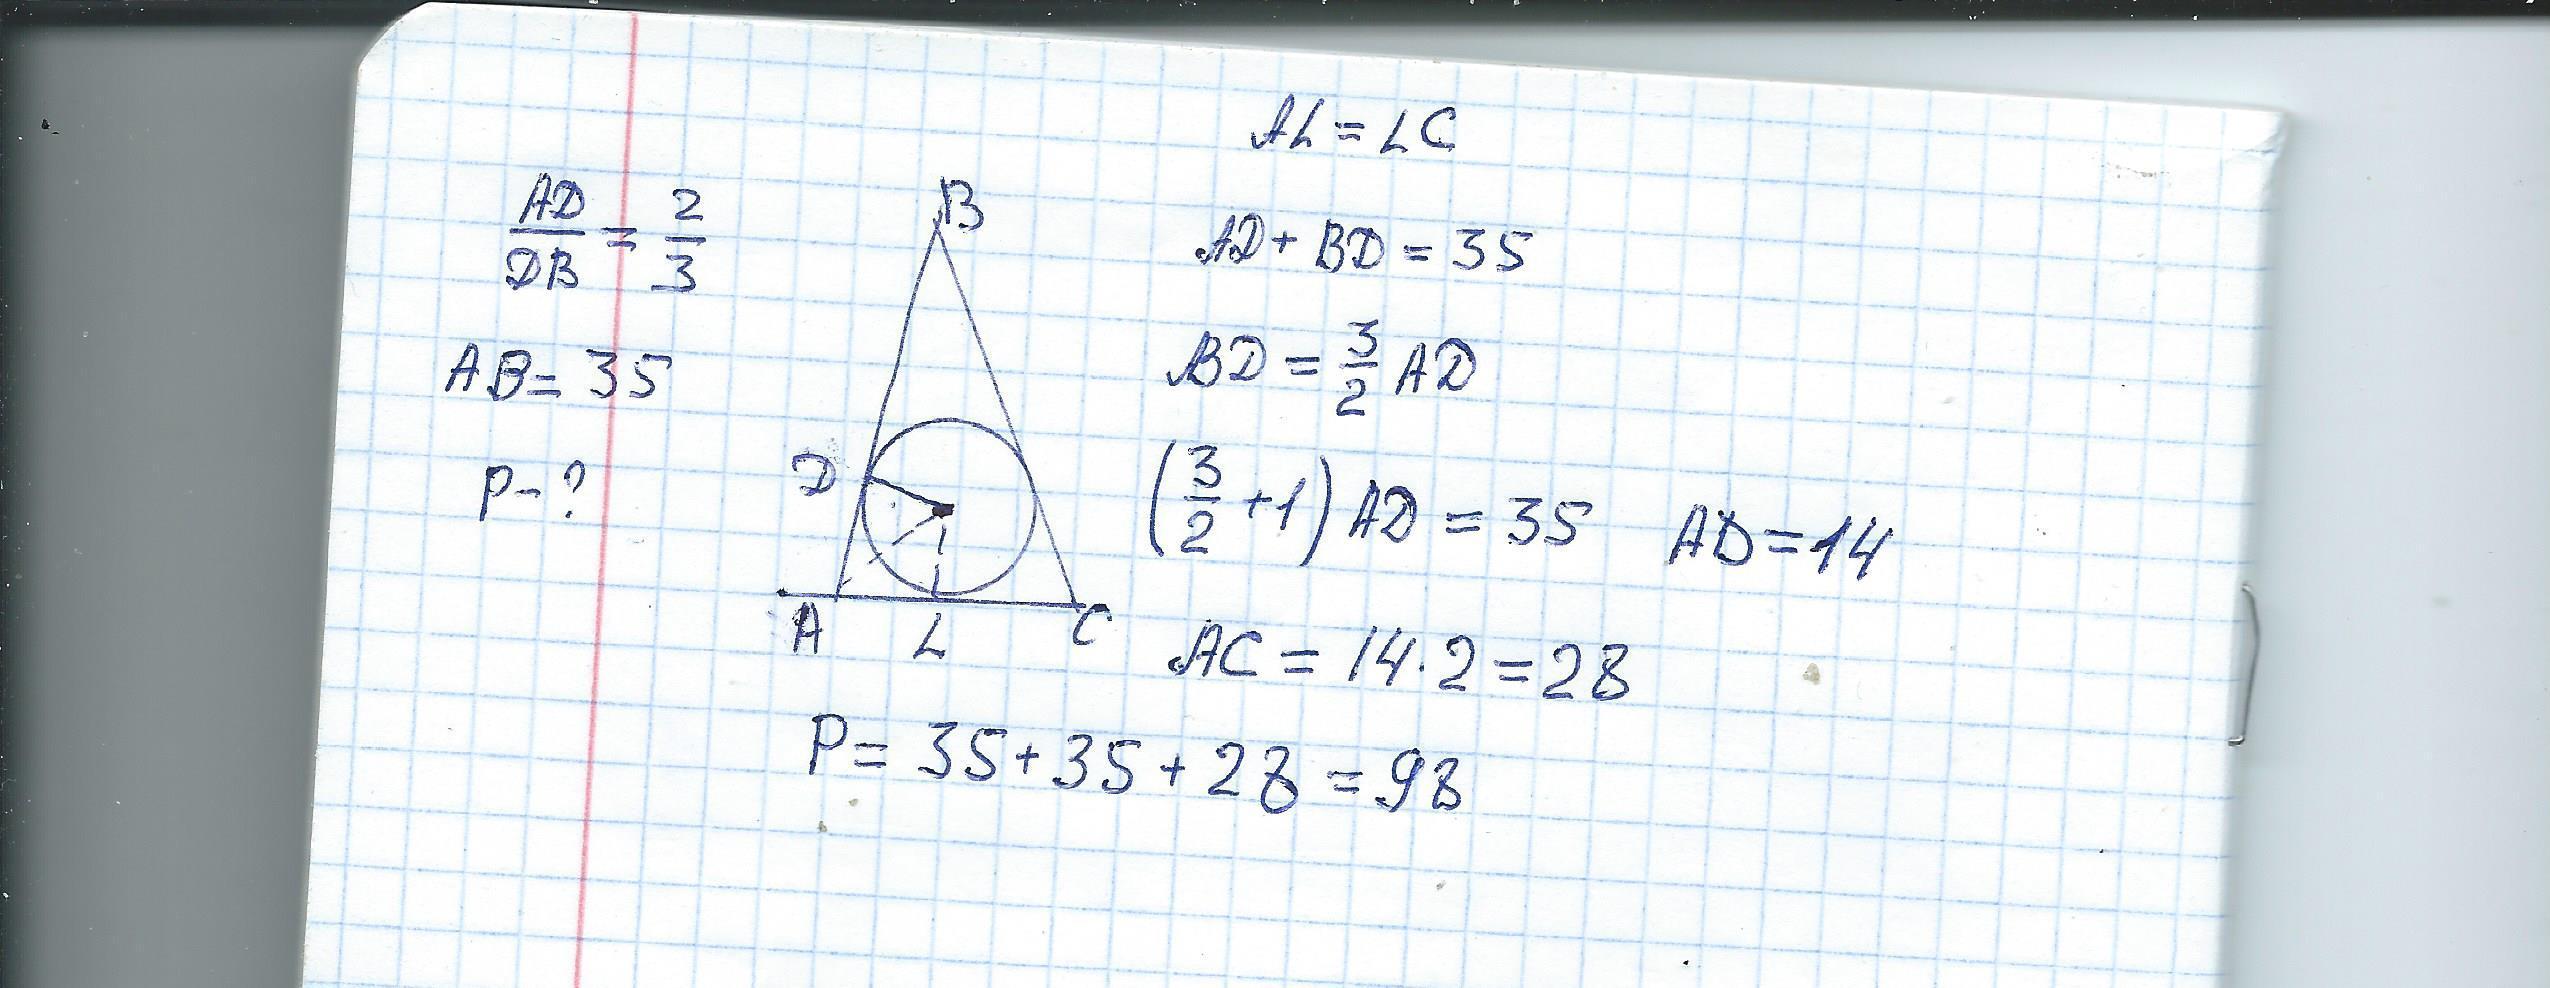 AL = LC
AD/DB = 2/3
AB = 35
P - ?
B
D
A
L
C
AD + BD = 35
BD = 3/2 AD
(3/2 + 1) AD = 35 AD = 14
AC = 14 · 2 = 28
P = 35 + 35 + 28 = 98